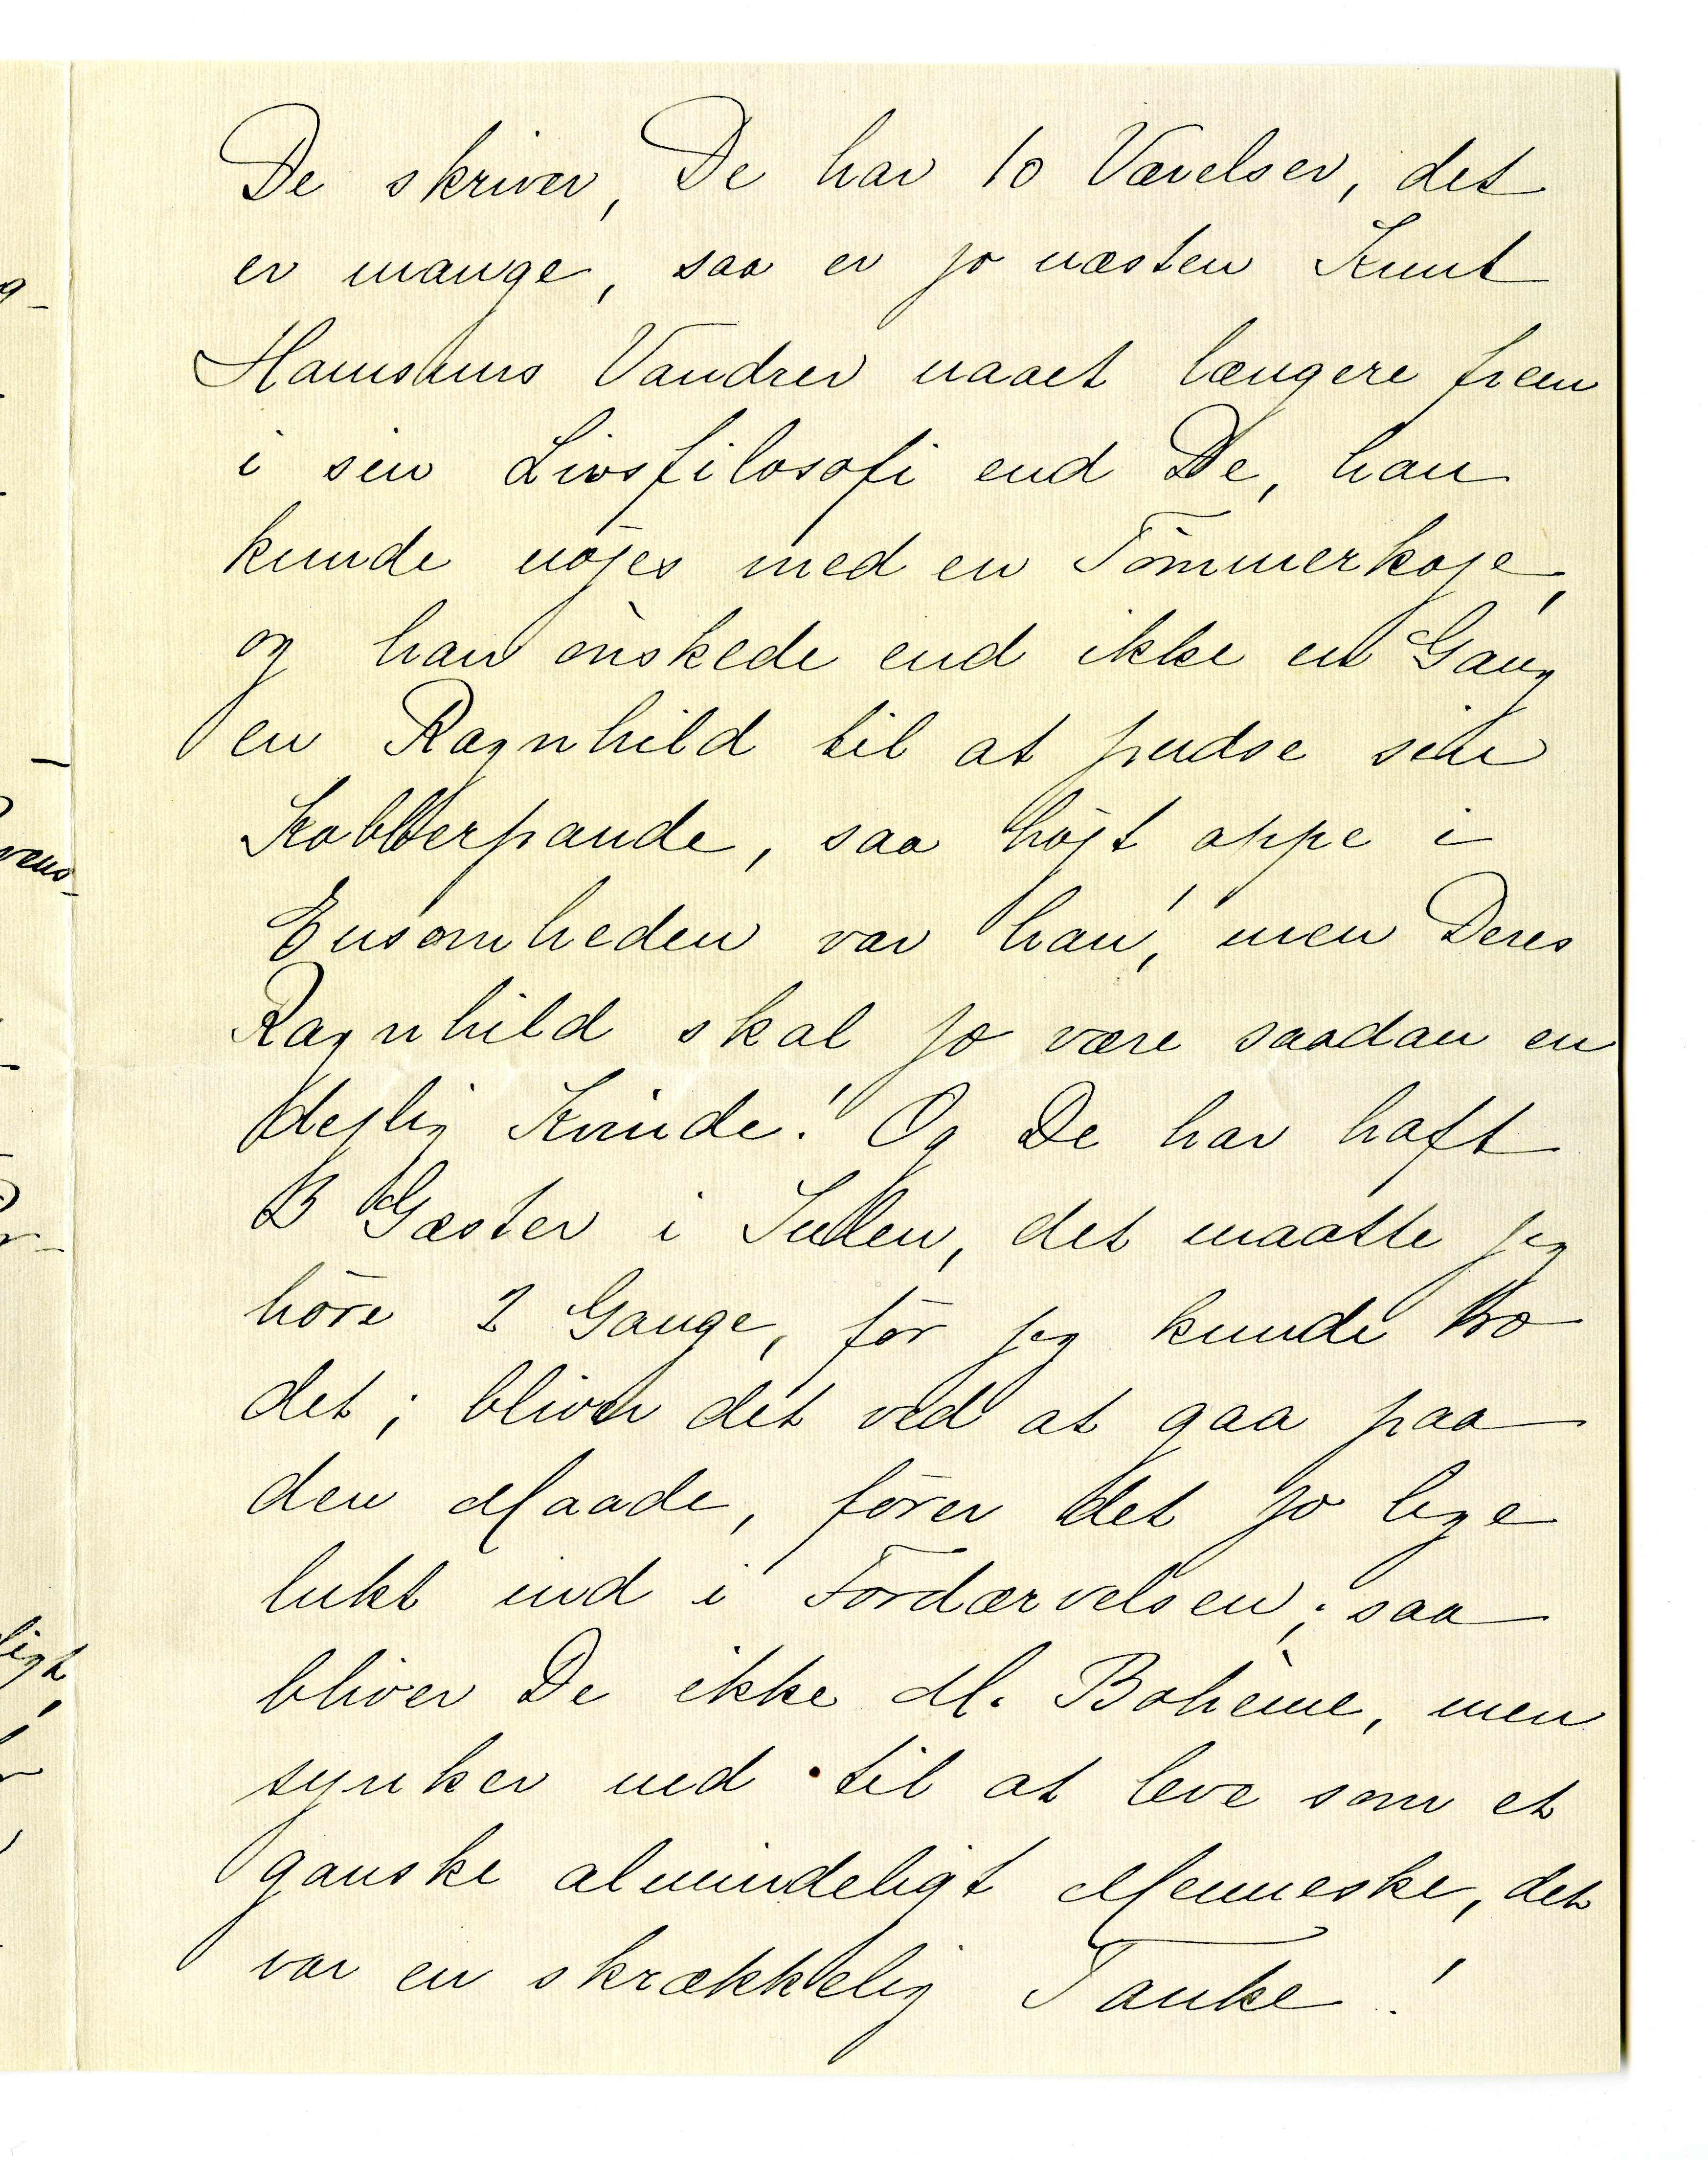 De skriver, De har 10 Værelser, det
er mange, saa er jo næsten Knut
Hamsuns Vandrer naaet længere frem
i sin Livsfilosofi end De, han
kunde nöjes med en Tömmerkoje,
og han önskede end ikke en Gang
en Ragnhild til at pudse sin
Kobberpande, saa höjt oppe i
Ensomheden var han, men Deres
Ragnhild skal jo være saadan en
dejlig Kvinde! Og De har haft
Gæster i Julen, det maatte jeg
höre 2 Gange, för jeg kunde tro
det; bliver det ved at gaa paa
den Maade, förer det jo lige
lukt ind i Fordærvelsen; saa
bliver De ikke M. Bohème, men
synker ned til at leve som et
ganske almindeligt Menneske, det
var en skrækkelig Tanke!